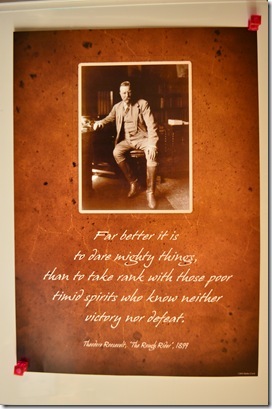 Far better it is
to dare mighty things,
than to take rank with those poor
timid spirits who know neither
victory nor defeat.
Theodore Roosevelt, "The Rough Rider", 1899